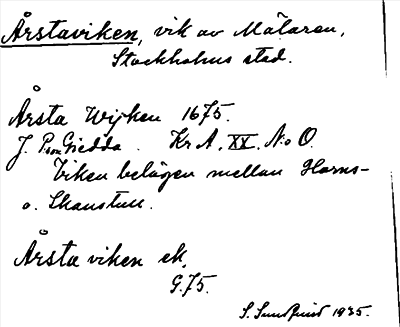 Årstaviken, vik av Mälaren,
Stockholms stad.
Årsta Wijken 1675.
J. Pson Giedda. Kr A, XX. No O.
Viken belägen mellan Horns-
o. Skanstull.
Årsta viken ek.
G.75.
S. Sundquist 1935.